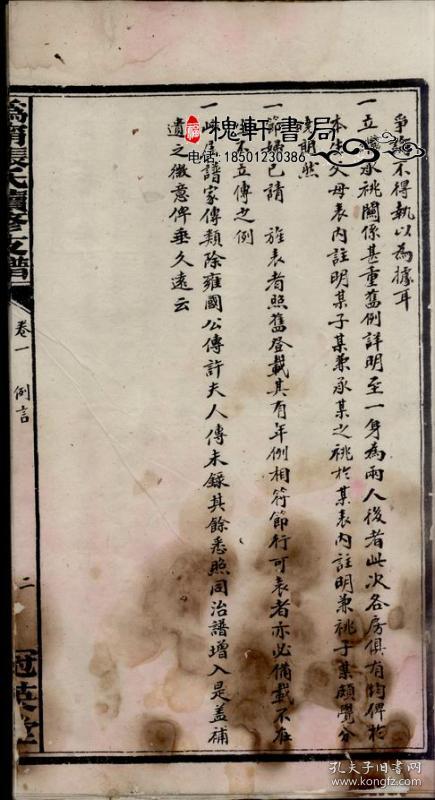 爭訟不得執以為據耳
一立繼承祧關係甚重舊例詳明至一身為兩人後者此次各房俱有的俾於
本生父母表內註明某子某兼承某之祧於某表內註明兼祧子某頗覺分
明照
一節婦已請 旌表者照舊登載其有年例相符節行可表者亦必備載不在
不立傳之例
一 譜家傳類除雍國公傳許夫人傳未錄其餘悉照同治譜增入是蓋補
遺之微意俾垂久遠云
張氏續修支譜
卷一 例言
二
冠英堂
福 槐軒書局
电话:18501230386
孔夫子旧书网